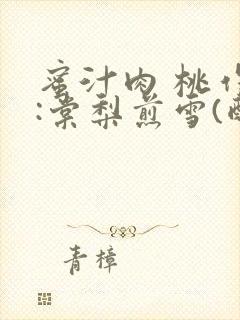 蜜汁肉桃作
:棠梨煎雪(酥
青樟